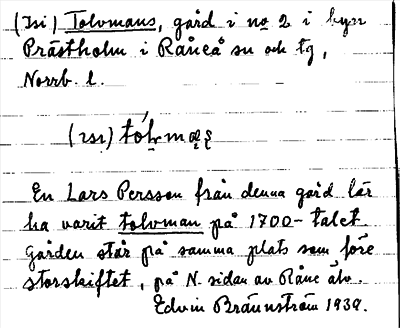 (Isi) Tolvmans, gård i no 2 i byn
Prästholm i Råneå sn och tg,
Norrb. l.
(ısı)
En Lars Persson från denna gård lär
ha varit tolvman på 1700-talet
Gården står på samma plats som före
storskiftet, på N. sidan av Råne älv.
Edvin Brännström 1939.